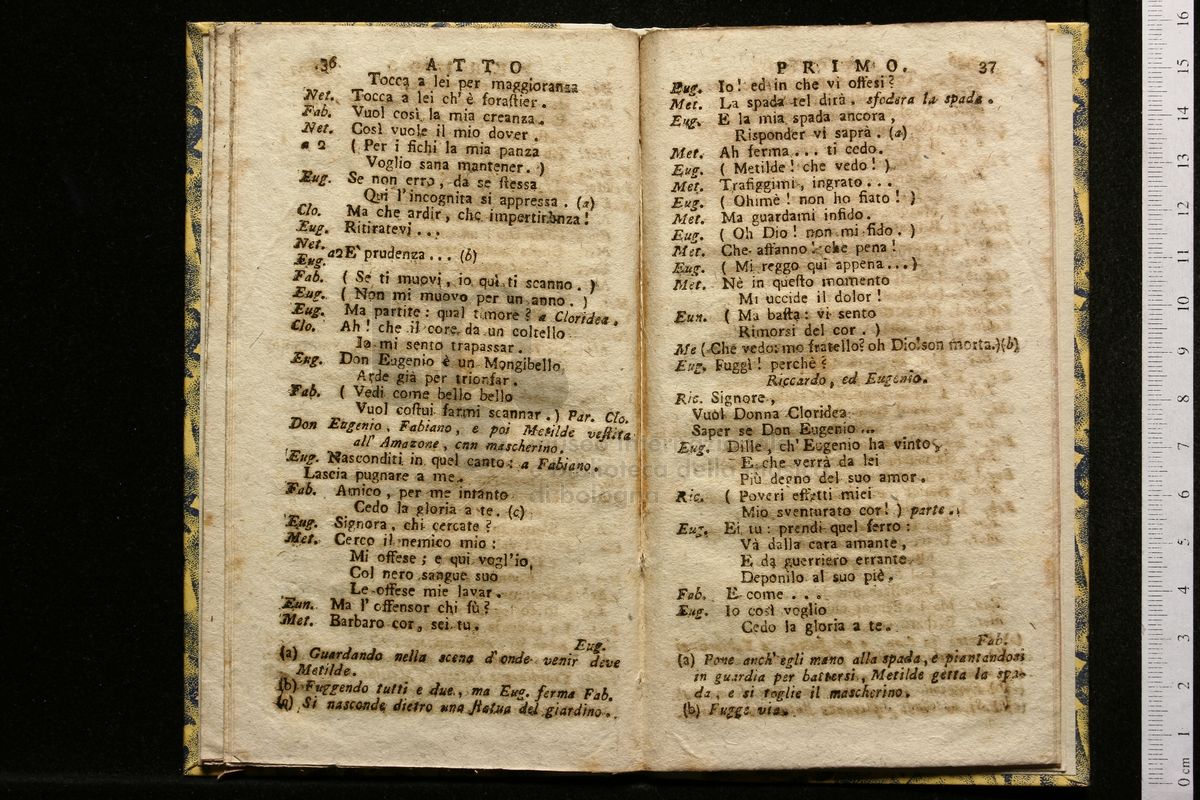 36 ATTO
Tocca a lei per maggioranza
Net. Tocca a lei ch' è foraſtier.
Fab. Vuol così la mia creanza.
Net. Così vuole il mio dover.
a 2 ( Per i fichi la mia panza
Voglio sana mantener. )
Eug. Se non erro, da se ſteſsa
Qui l'incognita si appressa. (a)
Clo. Ma che ardir, che impertinenza!
Eug. Ritiratevi...
Net.
Eug. a2 E' prudenza... (b)
Fab. ( Se ti muovi, io quì ti scanno. )
Eug. ( Non mi muovo per un anno. )
Eug. Ma partite: qual timore? a Cloridea.
Clo. Ah! che il core da un coltello
Io mi sento trapassar.
Eug. Don Eugenio è un Mongibello,
Arde già per trionfar.
Fab. ( Vedi come bello bello
Vuol coſtui farmi scannar. ) Par. Clo.
Don Eugenio, Fabiano, e poi Metilde veſtita
all' Amazone, cnn mascherino.
Eug. Nasconditi in quel canto: a Fabiano.
Lascia pugnare a me.
Fab. Amico, per me intanto
Cedo la gloria a te. (c)
Eug. Signora, chi cercate?
Met. Cerco il nemico mio:
Mi offese; e qui vogl'io,
Col nero sangue suo
Le offese mie lavar.
Eun. Ma l' offensor chi fù?
Met. Barbaro cor, sei tu.
Eug.
(a) Guardando nella scena d'onde venir deve
Metilde.
(b) Fuggendo tutti e due, ma Eug. ferma Fab.
(a) Si nasconde dietro una ſtatua del giardino.
PRIMO. 37
Eug. Io! ed in che vi offesi?
Met. La spada tel dirà. sfodera la spada.
Eug. E la mia spada ancora,
Risponder vi saprà. (a)
Met. Ah ferma... ti cedo.
Eug. ( Metilde! che vedo! )
Met. Trafiggimi, ingrato...
Eug. ( Ohimè! non ho fiato! )
Met. Ma guardami infido.
Eug. ( Oh Dio! non mi fido. )
Met. Che affanno! che pena!
Eug. ( Mi reggo qui appena... )
Met. Nè in queſto momento
Mi uccide il dolor!
Eun. ( Ma baſta: vi sento
Rimorsi del cor. )
Me ( Che vedo: mo fratello? oh Dio! son morta. )(b)
Eug. Fuggì! perchè?
Riccardo, ed Eugenio.
Ric. Signore,
Vuol Donna Cloridea
Saper se Don Eugenio...
Eug. Dille, ch' Eugenio ha vinto,
E che verrà da lei
Più degno del suo amor.
Ric. ( Poveri effetti miei
Mio sventurato cor! ) parte.
Eug. Ei tu: prendi quel ferro:
Và dalla cara amante,
E da guerriero errante
Deponilo al suo piè.
Fab. E come...
Eug. Io così voglio
Cedo la gloria a te.
Fab.
(a) Pone anch' egli mano alla spada, e piantandosi
in guardia per battersi, Metilde getta la spa-
da, e si toglie il mascherino.
(b) Fugge via.